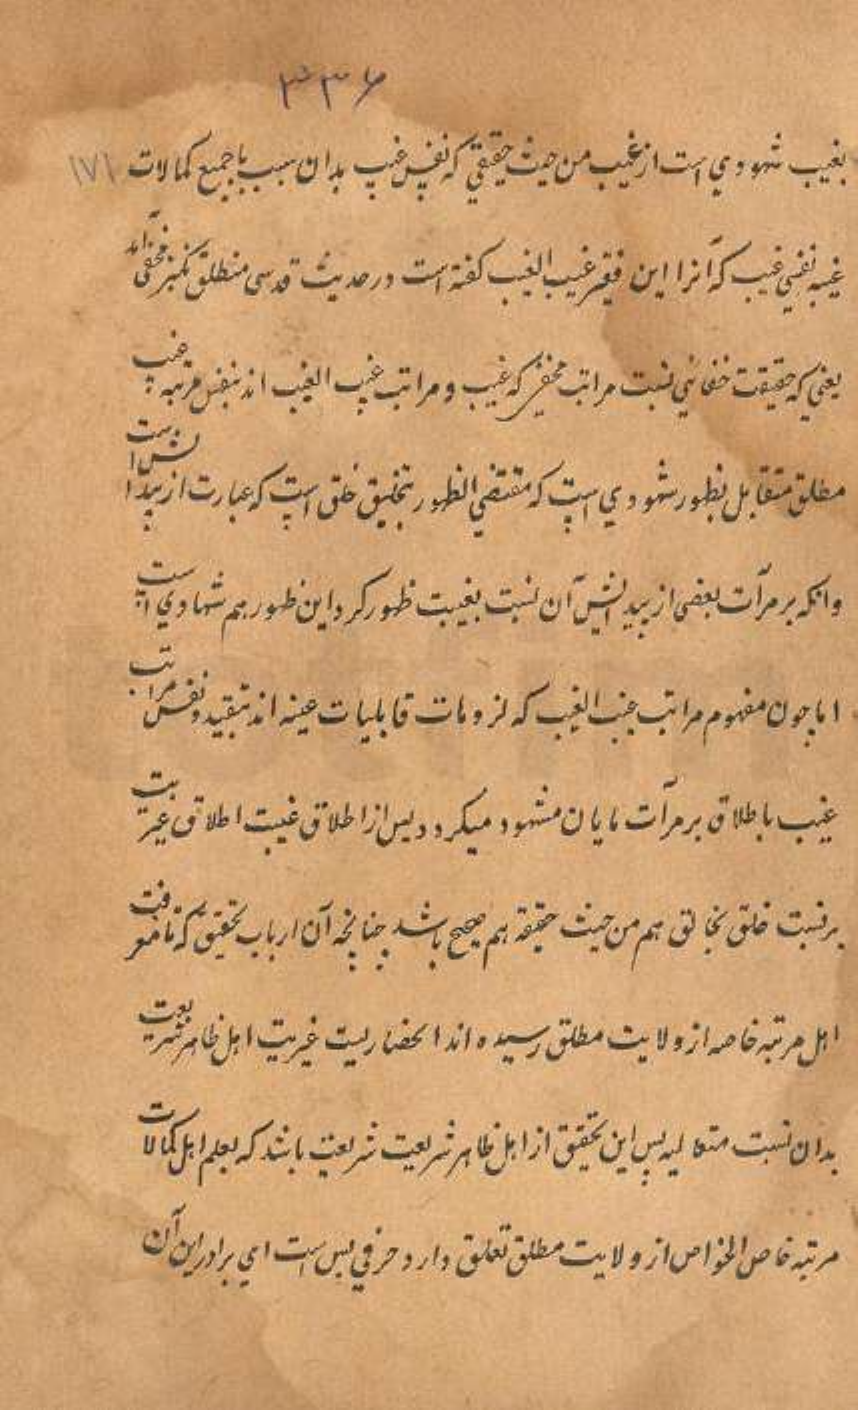 ۳۳۶
بغیب شهودی است از غیب من حیث حقیقی که نفس غیب بدان سبب با جمیع کمالات ۱۷۱
غیبه نفسی غیب که آنرا این فقیر غیب الغیب کفته است در حدیث قدسی منطلق مخفی آمد
یعنی که حقیقت خفائی نسبت مراتب مخفی که غیب و مراتب غیب الغیب اند بنفس مرتبه غیب
مطلق متقابل بظهور شهودی است که مقتضی الظهور بتخلیق خلق است که عبارت از پیدایش است
وانکه بر مرآت بعضی از پیدایش آن نسبت بغیبت ظهور کرد این ظهور هم شهادی است
اما چون مفهوم مراتب غیب الغیب که لزومات قابلیات عینه اند بتقید و نفس مراتب
غیب باطلاق بر مرآت مایان مشهود میکردد پس از اطلاق غیبت اطلاق غیریت
بر نسبت خلق بخالق هم من حیث حقیقة هم صحیح باشد چنانچه آن ارباب تحقیق که تا معرفت
اهل مرتبه خاصه از ولایت مطلق رسیده اند غیریت اهل ظاهر شریعت
بدان نسبت متعالیه پس این تحقیق از اهل ظاهر شریعت شریعت باشد که بعلم اهل کمالات
مرتبه خاص الخواص از ولایت مطلق تعلق دارد حرفی بس است ای برادر این آن